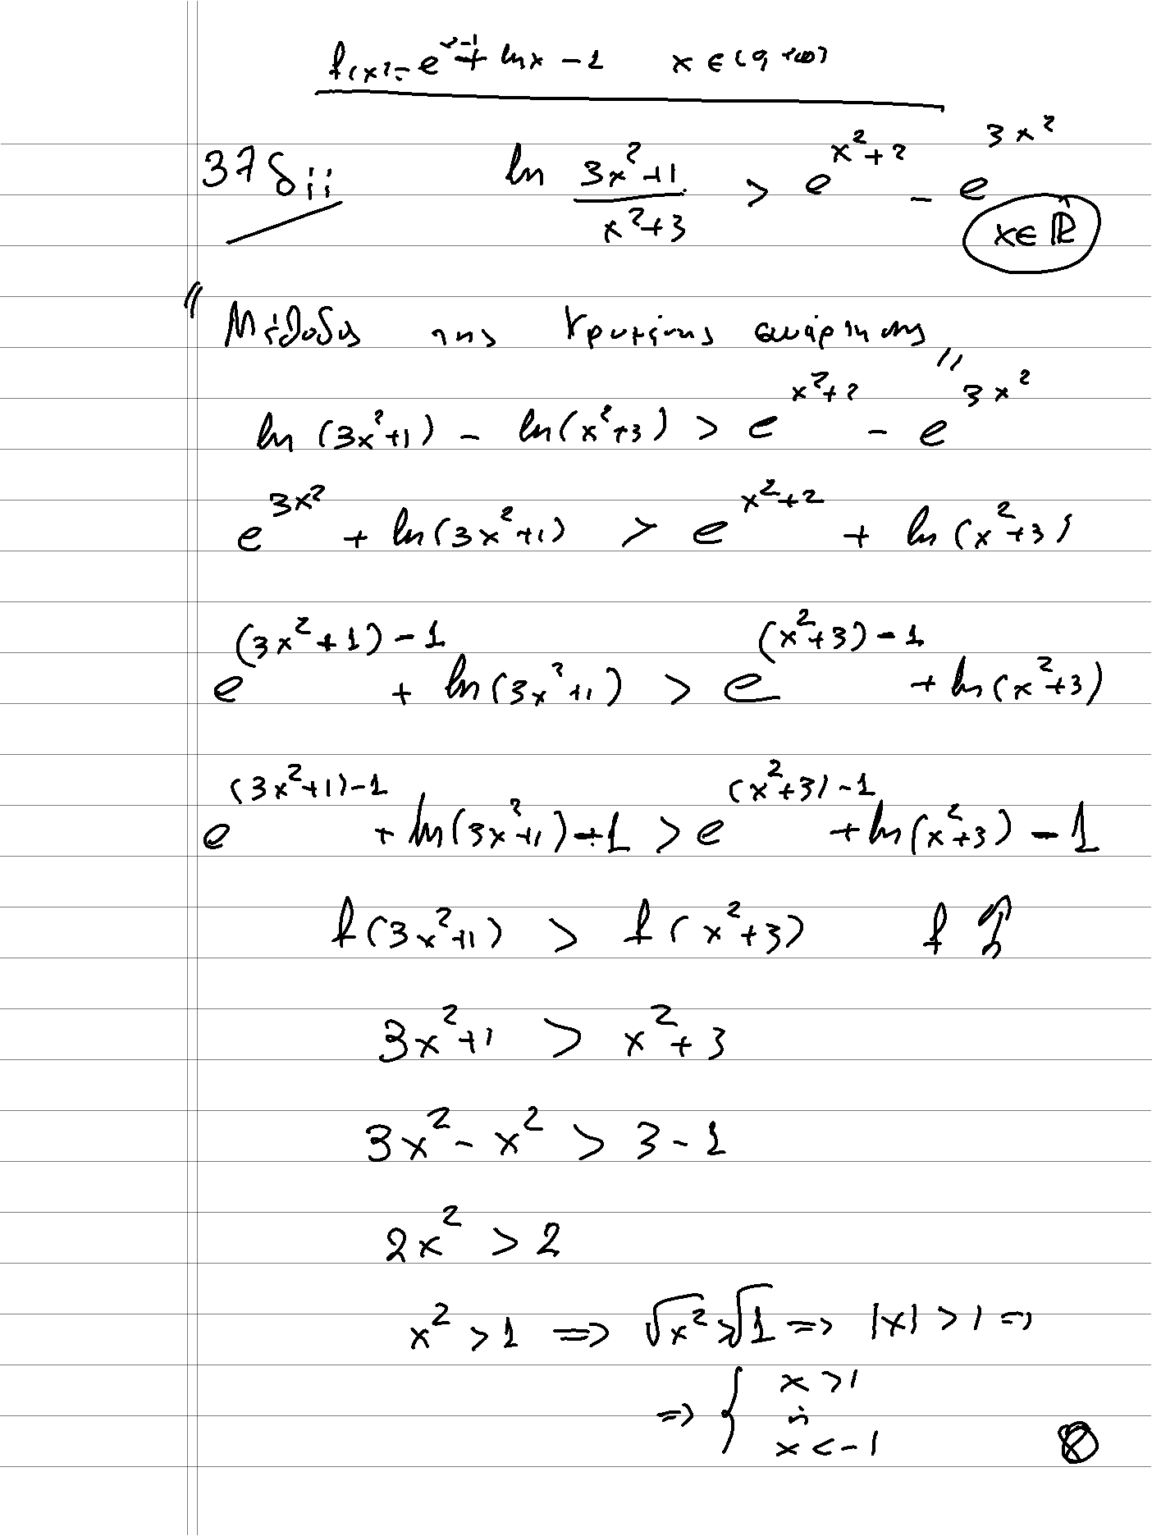 f(x) = e^{x-1} + ln x - 1 x ∈ (0, +∞)
37 δ ii ln \frac{3x^2+1}{x^2+3} > e^{x^2+2} - e^{3x^2}
x ∈ ℝ
"Μέθοδος της κρυμμένης συνάρτησης"
ln(3x^2+1) - ln(x^2+3) > e^{x^2+2} - e^{3x^2}
e^{3x^2} + ln(3x^2+1) > e^{x^2+2} + ln(x^2+3)
e^{(3x^2+1)-1} + ln(3x^2+1) > e^{(x^2+3)-1} + ln(x^2+3)
e^{(3x^2+1)-1} + ln(3x^2+1) - 1 > e^{(x^2+3)-1} + ln(x^2+3) - 1
f(3x^2+1) > f(x^2+3) f ↑
3x^2+1 > x^2+3
3x^2 - x^2 > 3 - 1
2x^2 > 2
x^2 > 1 ⇒ √x^2 > √1 ⇒ |x| > 1 ⇒
⇒ { x > 1
ή
x < -1